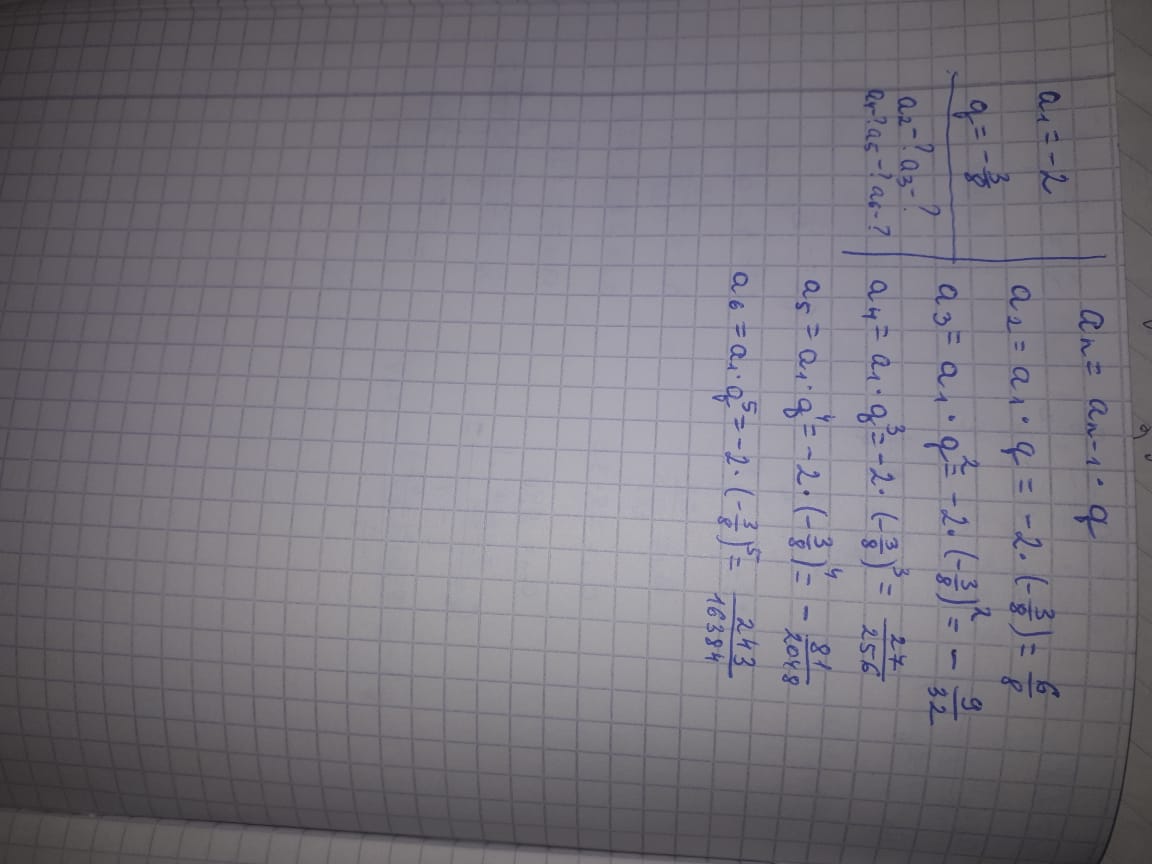 a₁ = -2
q = -3/8
a₂-? a₃-?
a₄-? a₅-? a₆-?
aₙ = aₙ₋₁ · q
a₂ = a₁ · q = -2 · (-3/8) = 6/8
a₃ = a₁ · q² = -2 · (-3/8)² = - 9/32
a₄ = a₁ · q³ = -2 · (-3/8)³ = 27/256
a₅ = a₁ · q⁴ = -2 · (-3/8)⁴ = - 81/2048
a₆ = a₁ · q⁵ = -2 · (-3/8)⁵ = 243/16384